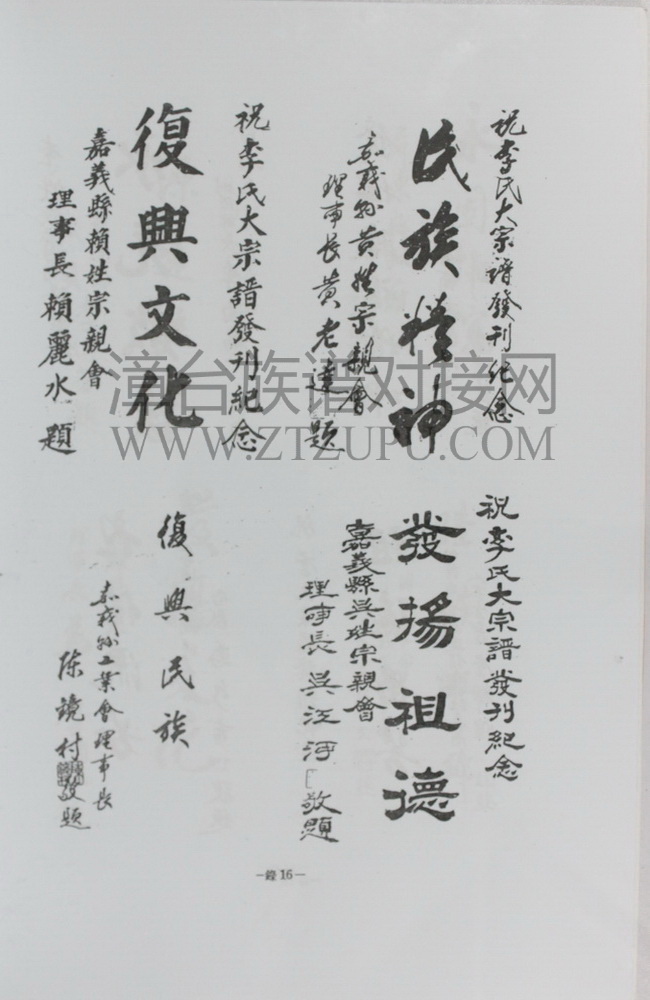 祝李氏大宗譜發刊紀念
民族精神
嘉義縣黃姓宗親會
理事長黃老達題
祝李氏大宗譜發刊紀念
復興文化
嘉義縣賴姓宗親會
理事長賴麗水題
祝李氏大宗譜發刊紀念
發揚祖德
嘉義縣吳姓宗親會
理事長吳江河敬題
復興民族
嘉義縣工業會理事長
陳境村敬題
—錄 16—
漳台族谱对接网
WWW.ZTZUPU.COM